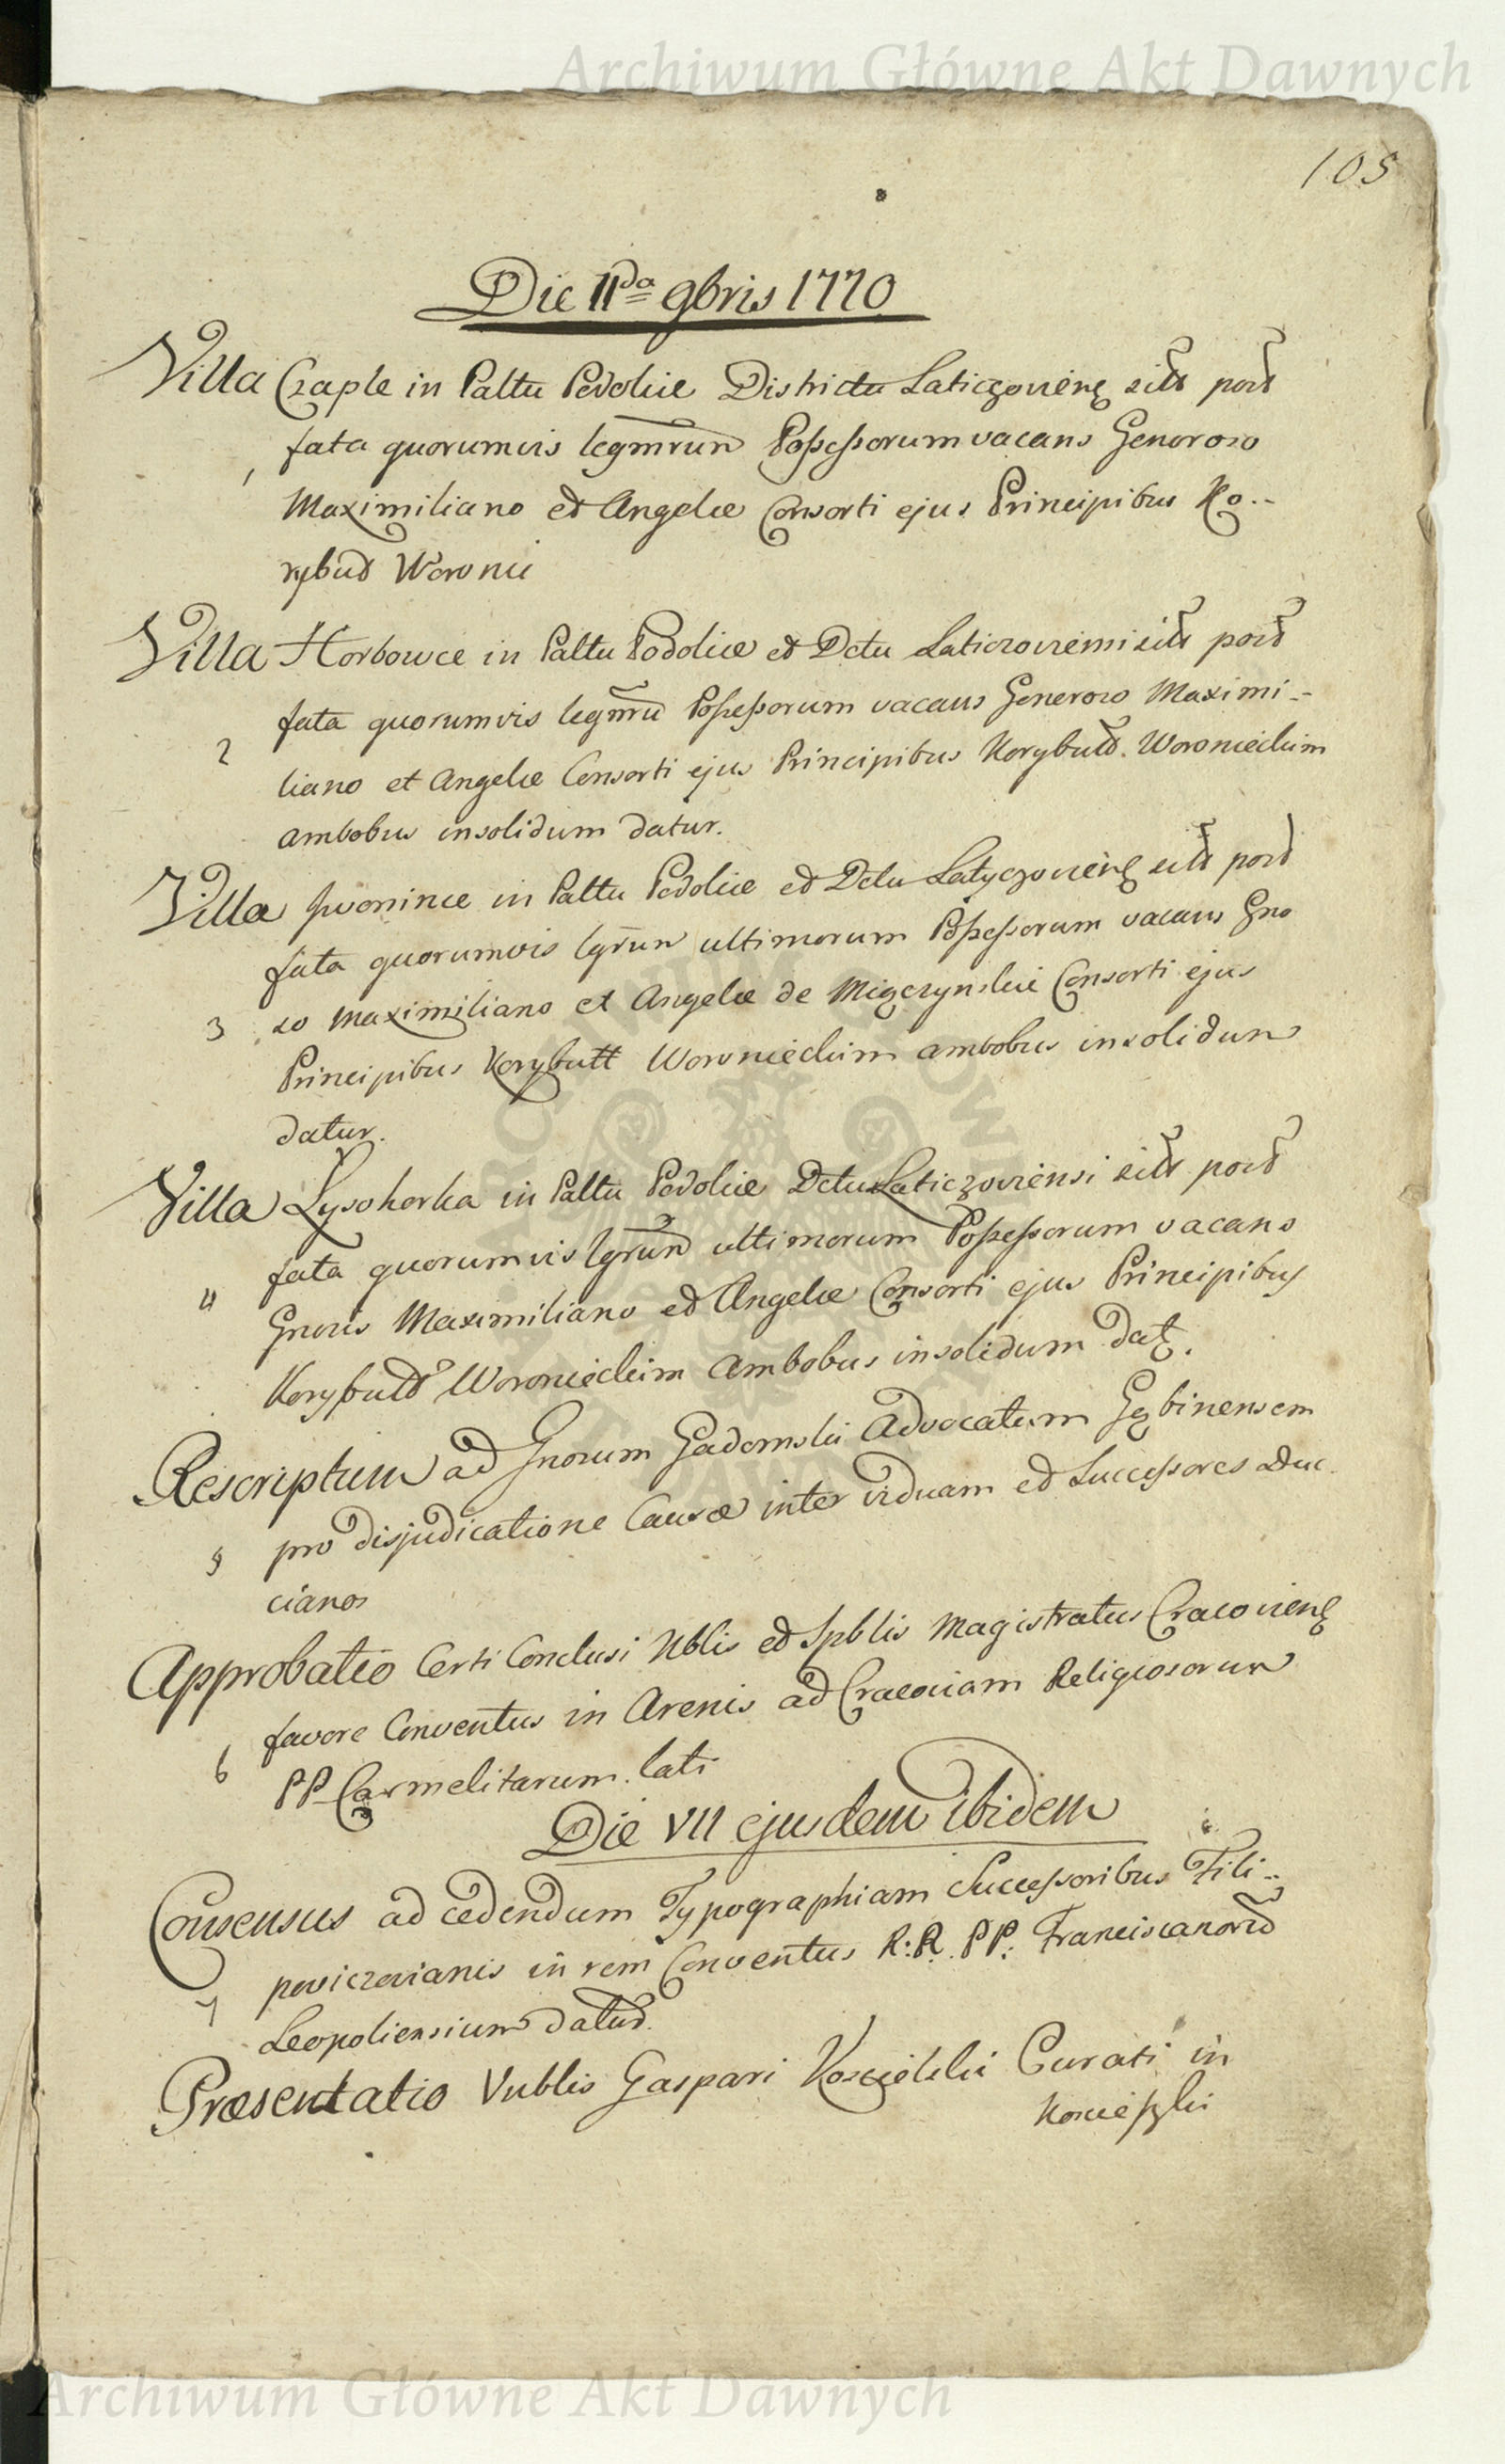 Archiwum Główne Akt Dawnych
105
Die IIda 9bris 1770
Villa Czaple in Pałtu Podoliæ Districtu Laticzovienę sits post
fata quorumvis legmrum Possessorum vacans Generoso
1
Maximiliano et Angelæ Consorti ejus Principibus Ko--
rybut Woronie
Villa Horbowce in Pałtu Podoliæ et Dctu Laticzoviensi sits post
fata quorumvis legmru Possessorum vacans Generoso Maximi-
2
liano et Angelæ Consorti ejus Principibus Korybutt. Woronieckim
ambobus insolidum datur.
Villa Iwonince in Pałtu Podoliæ et Dctu Latyczovienę sits post
fata quorumvis lgrum ultimorum Possessorum vacans Gno
3 so Maximiliano et Angelæ de Miączynskie Consorti ejus
Principibus Korybutt Woronieckim ambobus insolidum
datur.
Villa Lysohorka in Pałtu Podoliæ Dctu Laticzoviensi sits post
fata quorumvis lgrum ultimorum Possessorum vacans
4
Gnosis Maximiliano et Angelæ Consorti ejus Principibus
Korybutt Woronieckim Ambobus insolidum datę.
Rescriptum ad Gnosum Gadomski Advocatum Gąbinensem
5 pro disjudicatione Causæ inter viduam et Successores Duc
cianos
Approbatio Certi Conclusi Nblis et Spblis Magistratus Cracovienę
favore Conventus in Arenis ad Cracoviam Religiosorum
6
PP Carmelitarum. lati
Die VII ejusdem ibidem
Consensus ad cedendum Typographiam Successoribus Fili-
7 powiczovianis in rem Conventus R:R. PP: Franciscanorum
Leopoliensium datus.
Præsentatio Vnblis Gaspari Kosciolski Curati in
Archiwum Główne Akt Dawnych